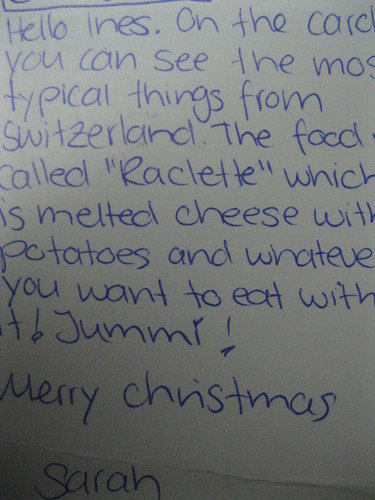 Hello Ines. On the card
you can see the mos
typical things from
Switzerland. The food
called "Raclette" which
is melted cheese with
potatoes and whateve
you want to eat with
it! Jummi!
Merry christmas
Sarah